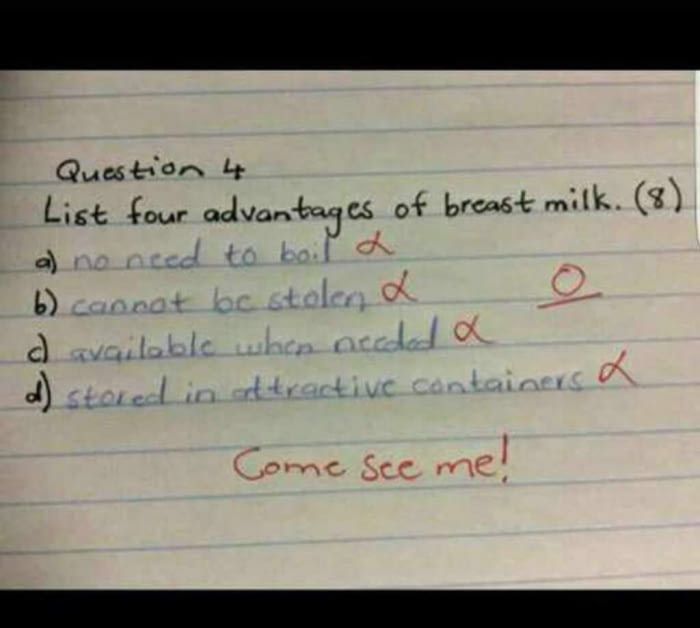 Question 4
List four advantages of breast milk. (8)
a) no need to boil
b) cannot be stolen
0
c) available when needed
d) stored in attractive containers
Come see me!